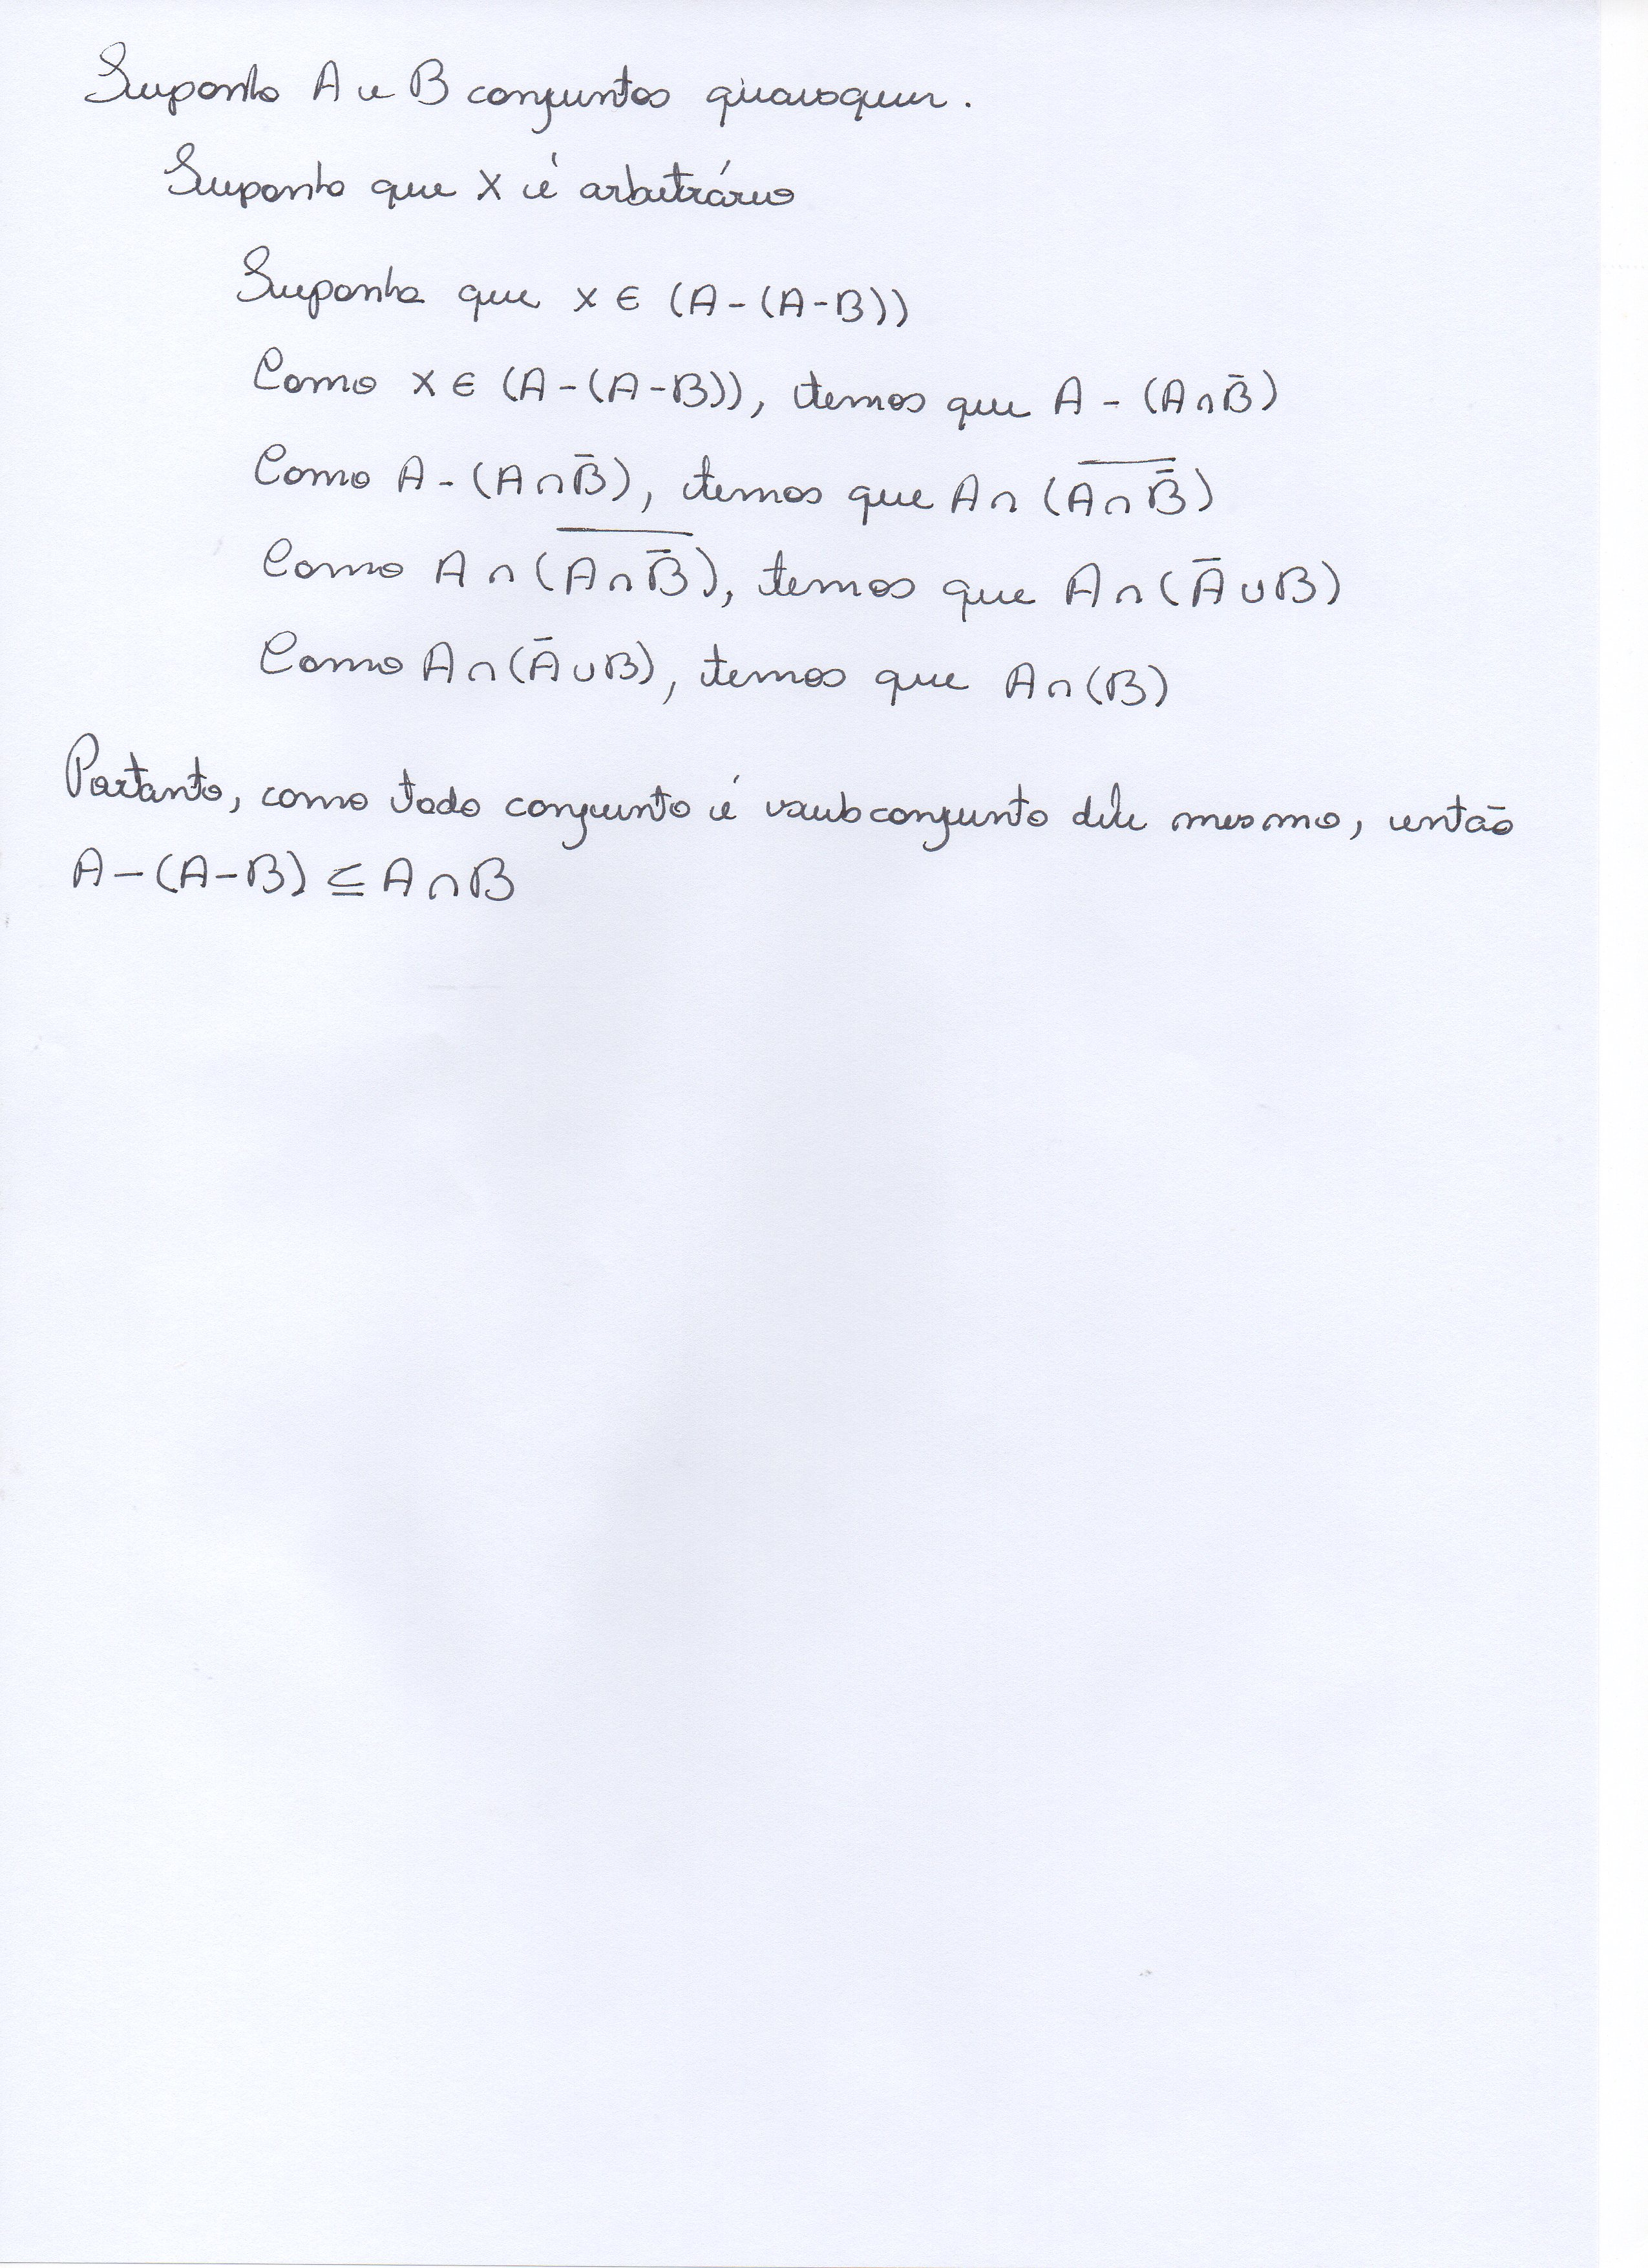 Suponha A e B conjuntos quaisquer.
Suponha que X é arbitrário
Suponha que x ∈ (A - (A - B))
Como x ∈ (A - (A - B)), temos que A - (A ∩ B̅)
Como A - (A ∩ B̅), temos que A ∩ (\overline{A ∩ B̅})
Como A ∩ (\overline{A ∩ B̅}), temos que A ∩ (A̅ ∪ B)
Como A ∩ (A̅ ∪ B), temos que A ∩ (B)
Portanto, como todo conjunto é subconjunto dele mesmo, então
A - (A - B) ⊆ A ∩ B